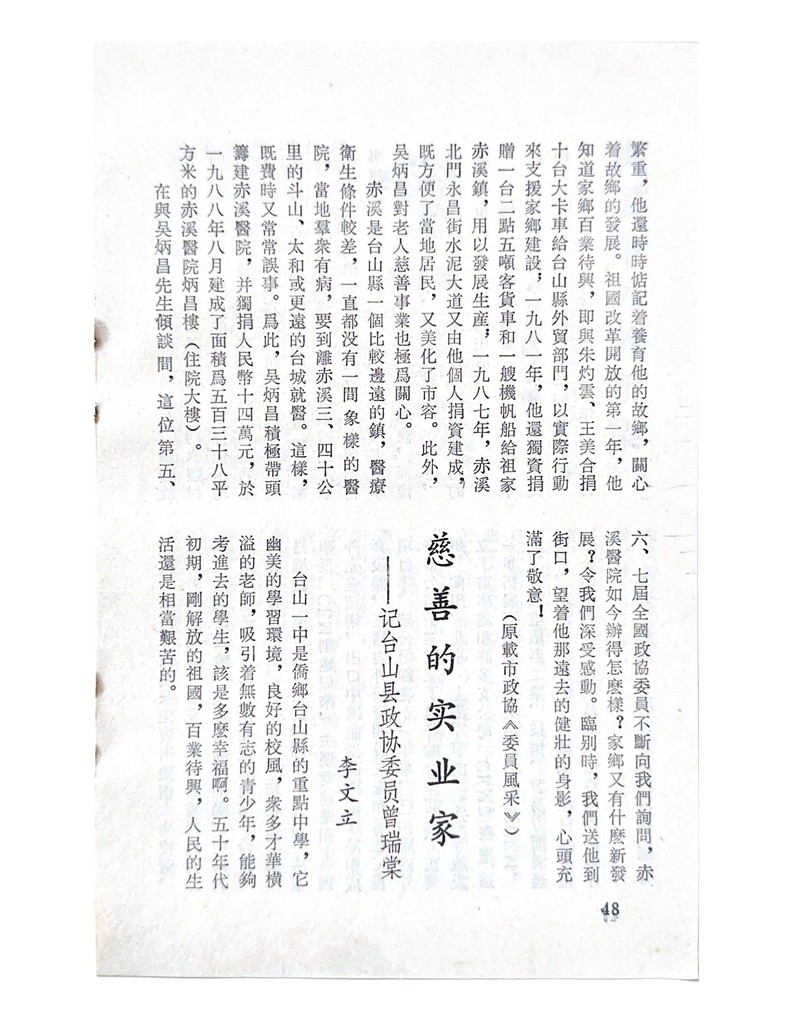 繁重，他還時時惦記着養育他的故鄉，關心
着故鄉的發展。祖國改革開放的第一年，他
知道家鄉百業待興，即與朱灼雲、王美合捐
十台大卡車給台山縣外貿部門，以實際行動
來支援家鄉建設，一九八一年，他還獨資捐
贈一台二點五噸客貨車和一艘機帆船給祖家
赤溪鎮，用以發展生産，一九八七年，赤溪
北門永昌街水泥大道又由他個人捐資建成，
既方便了當地居民，又美化了市容。此外，
吳炳昌對老人慈善事業也極爲關心。
赤溪是台山縣一個比較邊遠的鎮，醫療
衛生條件較差，一直都没有一間象樣的醫
院，當地羣衆有病，要到離赤溪三、四十公
里的斗山、太和或更遠的台城就醫。這樣，
既費時又常常誤事。爲此，吳炳昌積極帶頭
籌建赤溪醫院，并獨捐人民幣十四萬元，於
一九八八年八月建成了面積爲五百三十八平
方米的赤溪醫院炳昌樓（住院大樓）。
在與吳炳昌先生傾談間，這位第五、
六、七屆全國政協委員不斷向我們詢問，赤
溪醫院如今辦得怎麽樣？家鄉又有什麽新發
展？令我們深受感動。臨别時，我們送他到
街口，望着他那遠去的健壯的身影，心頭充
滿了敬意！
（原載市政協《委員風采》）
慈善的实业家
——记台山县政协委员曾瑞棠
李文立
台山一中是僑鄉台山縣的重點中學，它
幽美的學習環境，良好的校風，衆多才華横
溢的老師，吸引着無數有志的青少年，能夠
考進去的學生，該是多麽幸福啊。五十年代
初期，剛解放的祖國，百業待興，人民的生
活還是相當艱苦的。
48